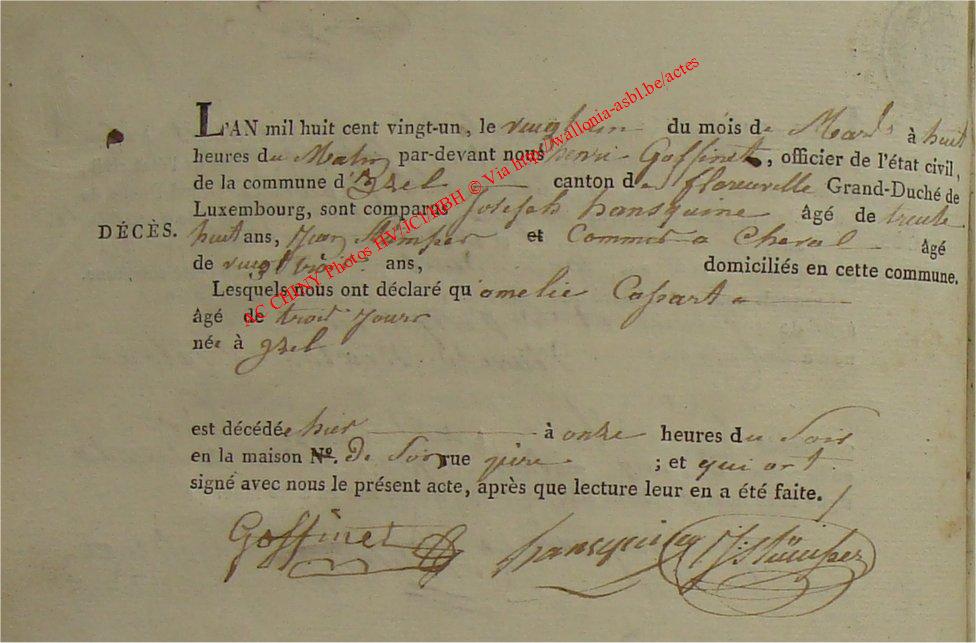 L'AN mil huit cent vingt-un, le vingt un du mois de Mars à huit
heures du Matin par-devant nous henri Goffinet, officier de l'état civil,
de la commune d'Izel canton de florenville Grand-Duché de
Luxembourg, sont comparus Joseph hansquine âgé de trente
DÉCÈS.
huit ans, et Commis a Cheval âgé
de vingt trois ans, domiciliés en cette commune.
Lesquels nous ont déclaré qu'amelie Cassart
âgé de trois jours
née à Izel
est décédée hier à onze heures du Soir
en la maison N°. De Son rue père ; et qui ont
signé avec nous le présent acte, après que lecture leur en a été faite.
Goffinet hansquine
AC CHINY Photos HV/JCI/HBH © Via http://wallonia-asbl.be/actes